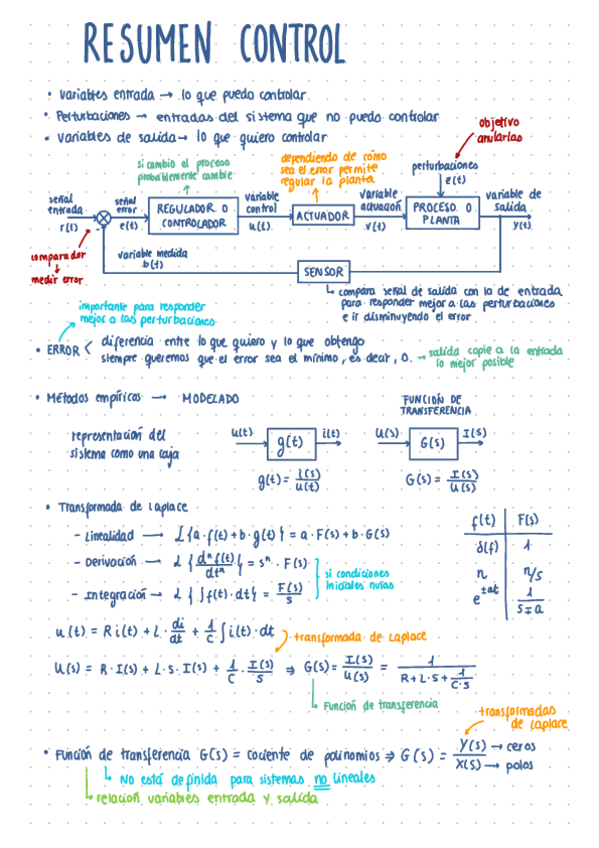 RESUMEN CONTROL
• Variables entrada → lo que puedo controlar
• Perturbaciones → entradas del sistema que no puedo controlar
• Variables de salida → lo que quiero controlar
objetivo
anularlas
si cambio el proceso
probablemente cambie
dependiendo de cómo
sea el error permite
regular la planta
perturbaciones
z(t)
señal
entrada
r(t)
señal
error
e(t)
REGULADOR O
CONTROLADOR
variable
control
u(t)
ACTUADOR
variable
actuación
v(t)
PROCESO O
PLANTA
variable de
salida
y(t)
comparador
↓
medir error
variable medida
b(t)
SENSOR
↳ compara señal de salida con la de entrada
para responder mejor a las perturbaciones
e ir disminuyendo el error
importante para responder
mejor a las perturbaciones
• ERROR < diferencia entre lo que quiero y lo que obtengo
siempre queremos que el error sea el mínimo, es decir, 0. → salida copie a la entrada
lo mejor posible
• Métodos empíricos → MODELADO
FUNCIÓN DE
TRANSFERENCIA
representación del
sistema como una caja
u(t) g(t) i(t)
U(s) G(s) I(s)
g(t) = i(s)/u(t)
G(s) = I(s)/U(s)
• Transformada de Laplace
- Linealidad → L{a·f(t)+b·g(t)} = a·F(s)+b·G(s)
- Derivación → L{dⁿf(t)/dtⁿ} = sⁿ·F(s)
- Integración → L{∫f(t)·dt} = F(s)/s
si condiciones
iniciales nulas
f(t) F(s)
δ(f) 1
n n/s
e^±at 1/(s±a)
u(t) = R i(t) + L· di/dt + 1/C ∫i(t)·dt
transformada de Laplace
U(s) = R·I(s) + L·s·I(s) + 1/C · I(s)/s ⇒ G(s) = I(s)/U(s) = 1/(R+L·s+1/(C·s))
↳ Función de transferencia
transformadas
de Laplace
• Función de transferencia G(s) = cociente de polinomios ⇒ G(s) = Y(s)/X(s) → ceros
→ polos
↳ No está definida para sistemas no lineales
↳ relación variables entrada y salida